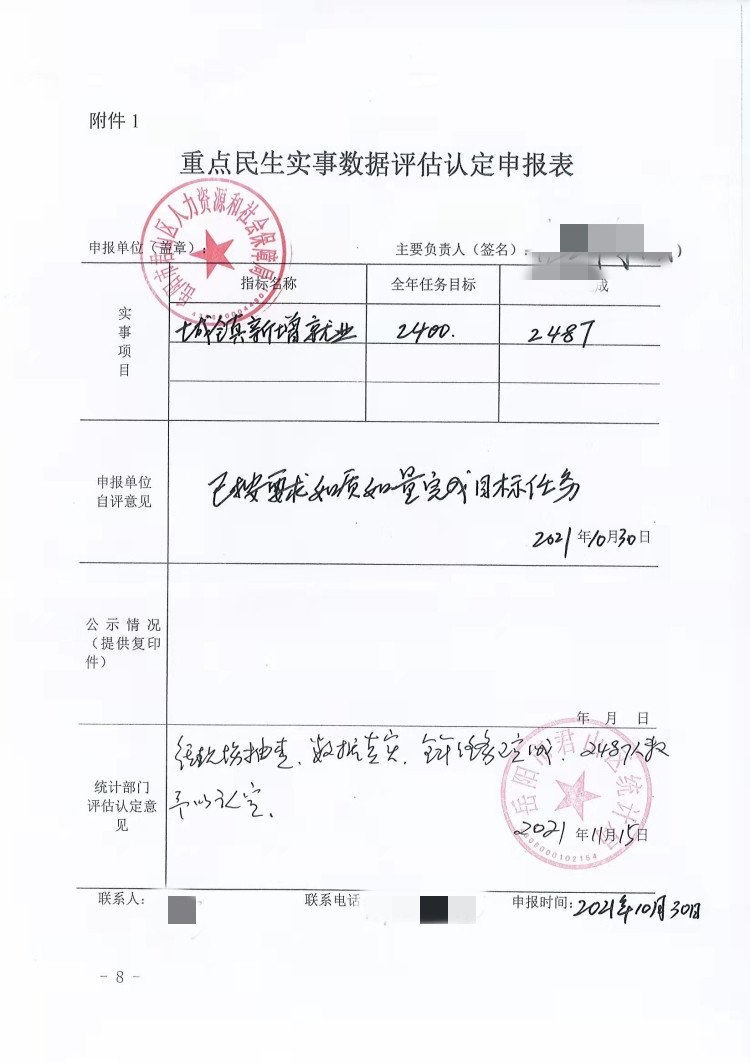 附件 1
重点民生实事数据评估认定申报表
申报单位（盖章）：
主要负责人（签名）：
）
岳阳市君山区人力资源和社会保障局
实事项目
指标名称
全年任务目标
成
城镇新增就业
2400.
2487
申报单位
自评意见
已按要求如质如量完成目标任务
2021年10月30日
公示情况
（提供复印
件）
年 月 日
统计部门
评估认定意
见
经现场抽查、数据真实、全年任务已完成、2487人数
予以认定。
岳阳市君山区统计局
2021年11月15日
联系人：
联系电话
申报时间：2021年10月30日
- 8 -